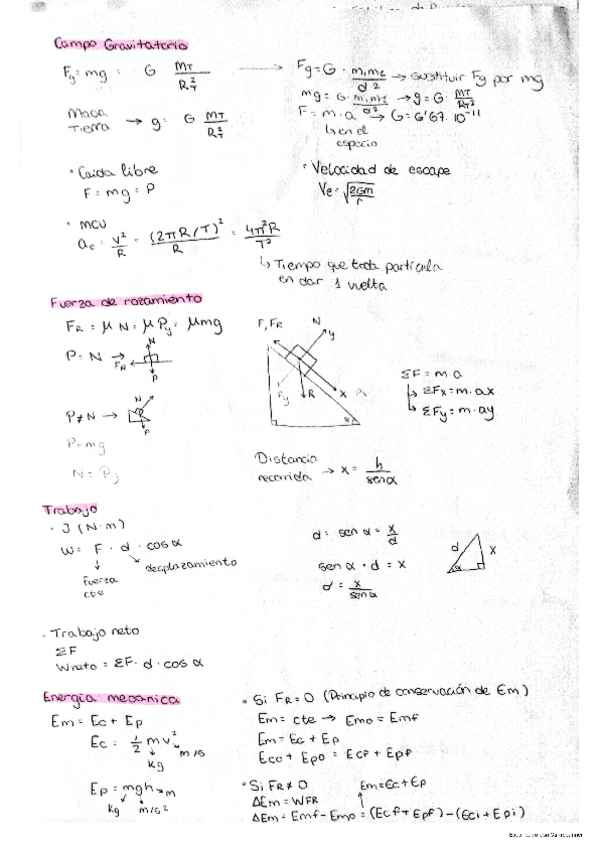 Campo Gravitatorio
Fg = mg = G MT/RT²
Fg = G · m₁m₂/d² → sustituir Fg por mg
mg = G · m₁m₂/d² → g = G · MT/RT²
Masa Tierra → g = G MT/RT²
F = m · a → G = 6'67 · 10⁻¹¹
↳ en el espacio
· Caída libre
F = mg = P
· Velocidad de escape
Ve = √(2Gm/r)
· MCU
ac = v²/R = (2πR/T)²/R = 4π²R/T²
↳ Tiempo que
en dar 1 vuelta
Fuerza de rozamiento
FR = μ N = μ Py = μmg
P = N → FR N P
P ≠ N → N P
P = mg
N = Py
F, FR N y Py R x Px α
ΣF = m a
↳ ΣFx = m · ax
↳ ΣFy = m · ay
Distancia recorrida → x = h/senα
Trabajo
· J (N · m)
W = F · d · cos α
fuerza cte
desplazamiento
d = sen α = x/d
sen α · d = x
d = x/sen α
d x α
· Trabajo neto
ΣF
Wneto = ΣF · d · cos α
Energía mecánica
Em = Ec + Ep
Ec = ½ m v²
kg
m/s
Ep = mgh → m
kg m/s²
· Si FR = 0 (Principio de conservación de Em)
Em = cte → Em0 = Emf
Em = Ec + Ep
Ec0 + Ep0 = Ecf + Epf
· Si FR ≠ 0
Em = Ec + Ep
ΔEm = WFR
ΔEm = Emf - Em0 = (Ecf + Epf) - (Eci + Epi)